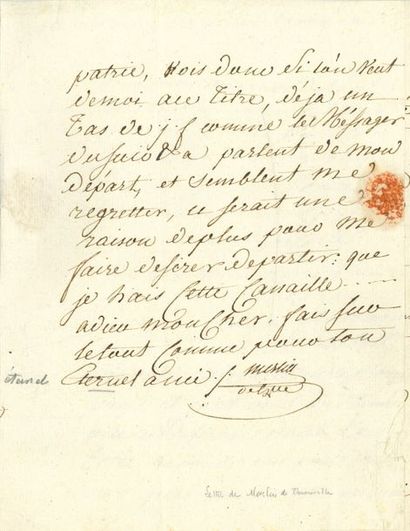 patrie, vois donc si l'on veut
de moi au titre, déja un
tas de j. f comme le Méssager
du soir & a parlent de mon
départ, et semblent me
regretter, ce serait une
raison deplus pour me
faire desirer departir: que
je hais cette Canaille
adieu moncher. fais sur
letout comme pour ton
Eternel ami ./.
éternel
Lettre de Merlin de Thionville